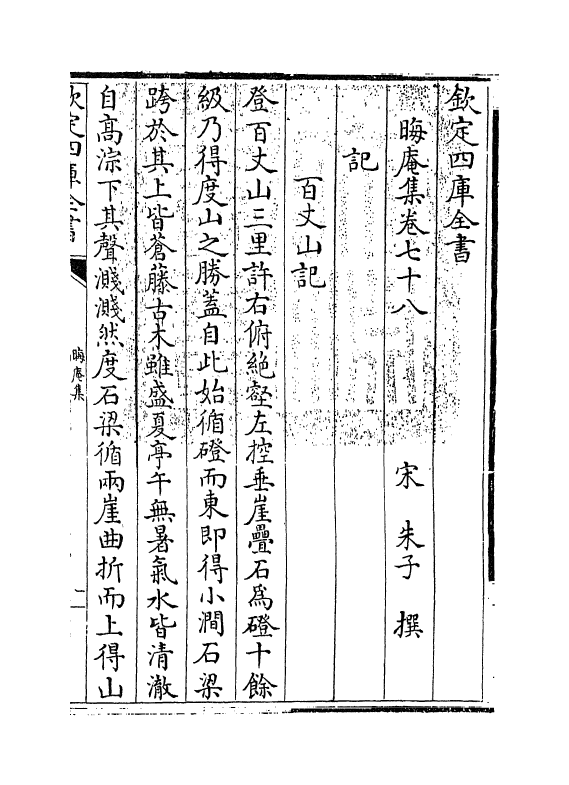 欽定四庫全書
晦庵集卷七十八
宋 朱子 撰
記
百丈山記
登百丈山三里許右俯絶壑左控垂崖疊石爲磴十餘
級乃得度山之勝蓋自此始循磴而東即得小澗石梁
跨於其上皆蒼藤古木雖盛夏亭午無暑氣水皆清澈
自髙淙下其聲濺濺然度石梁循兩崖曲折而上得山
欽定四庫全書
晦庵集